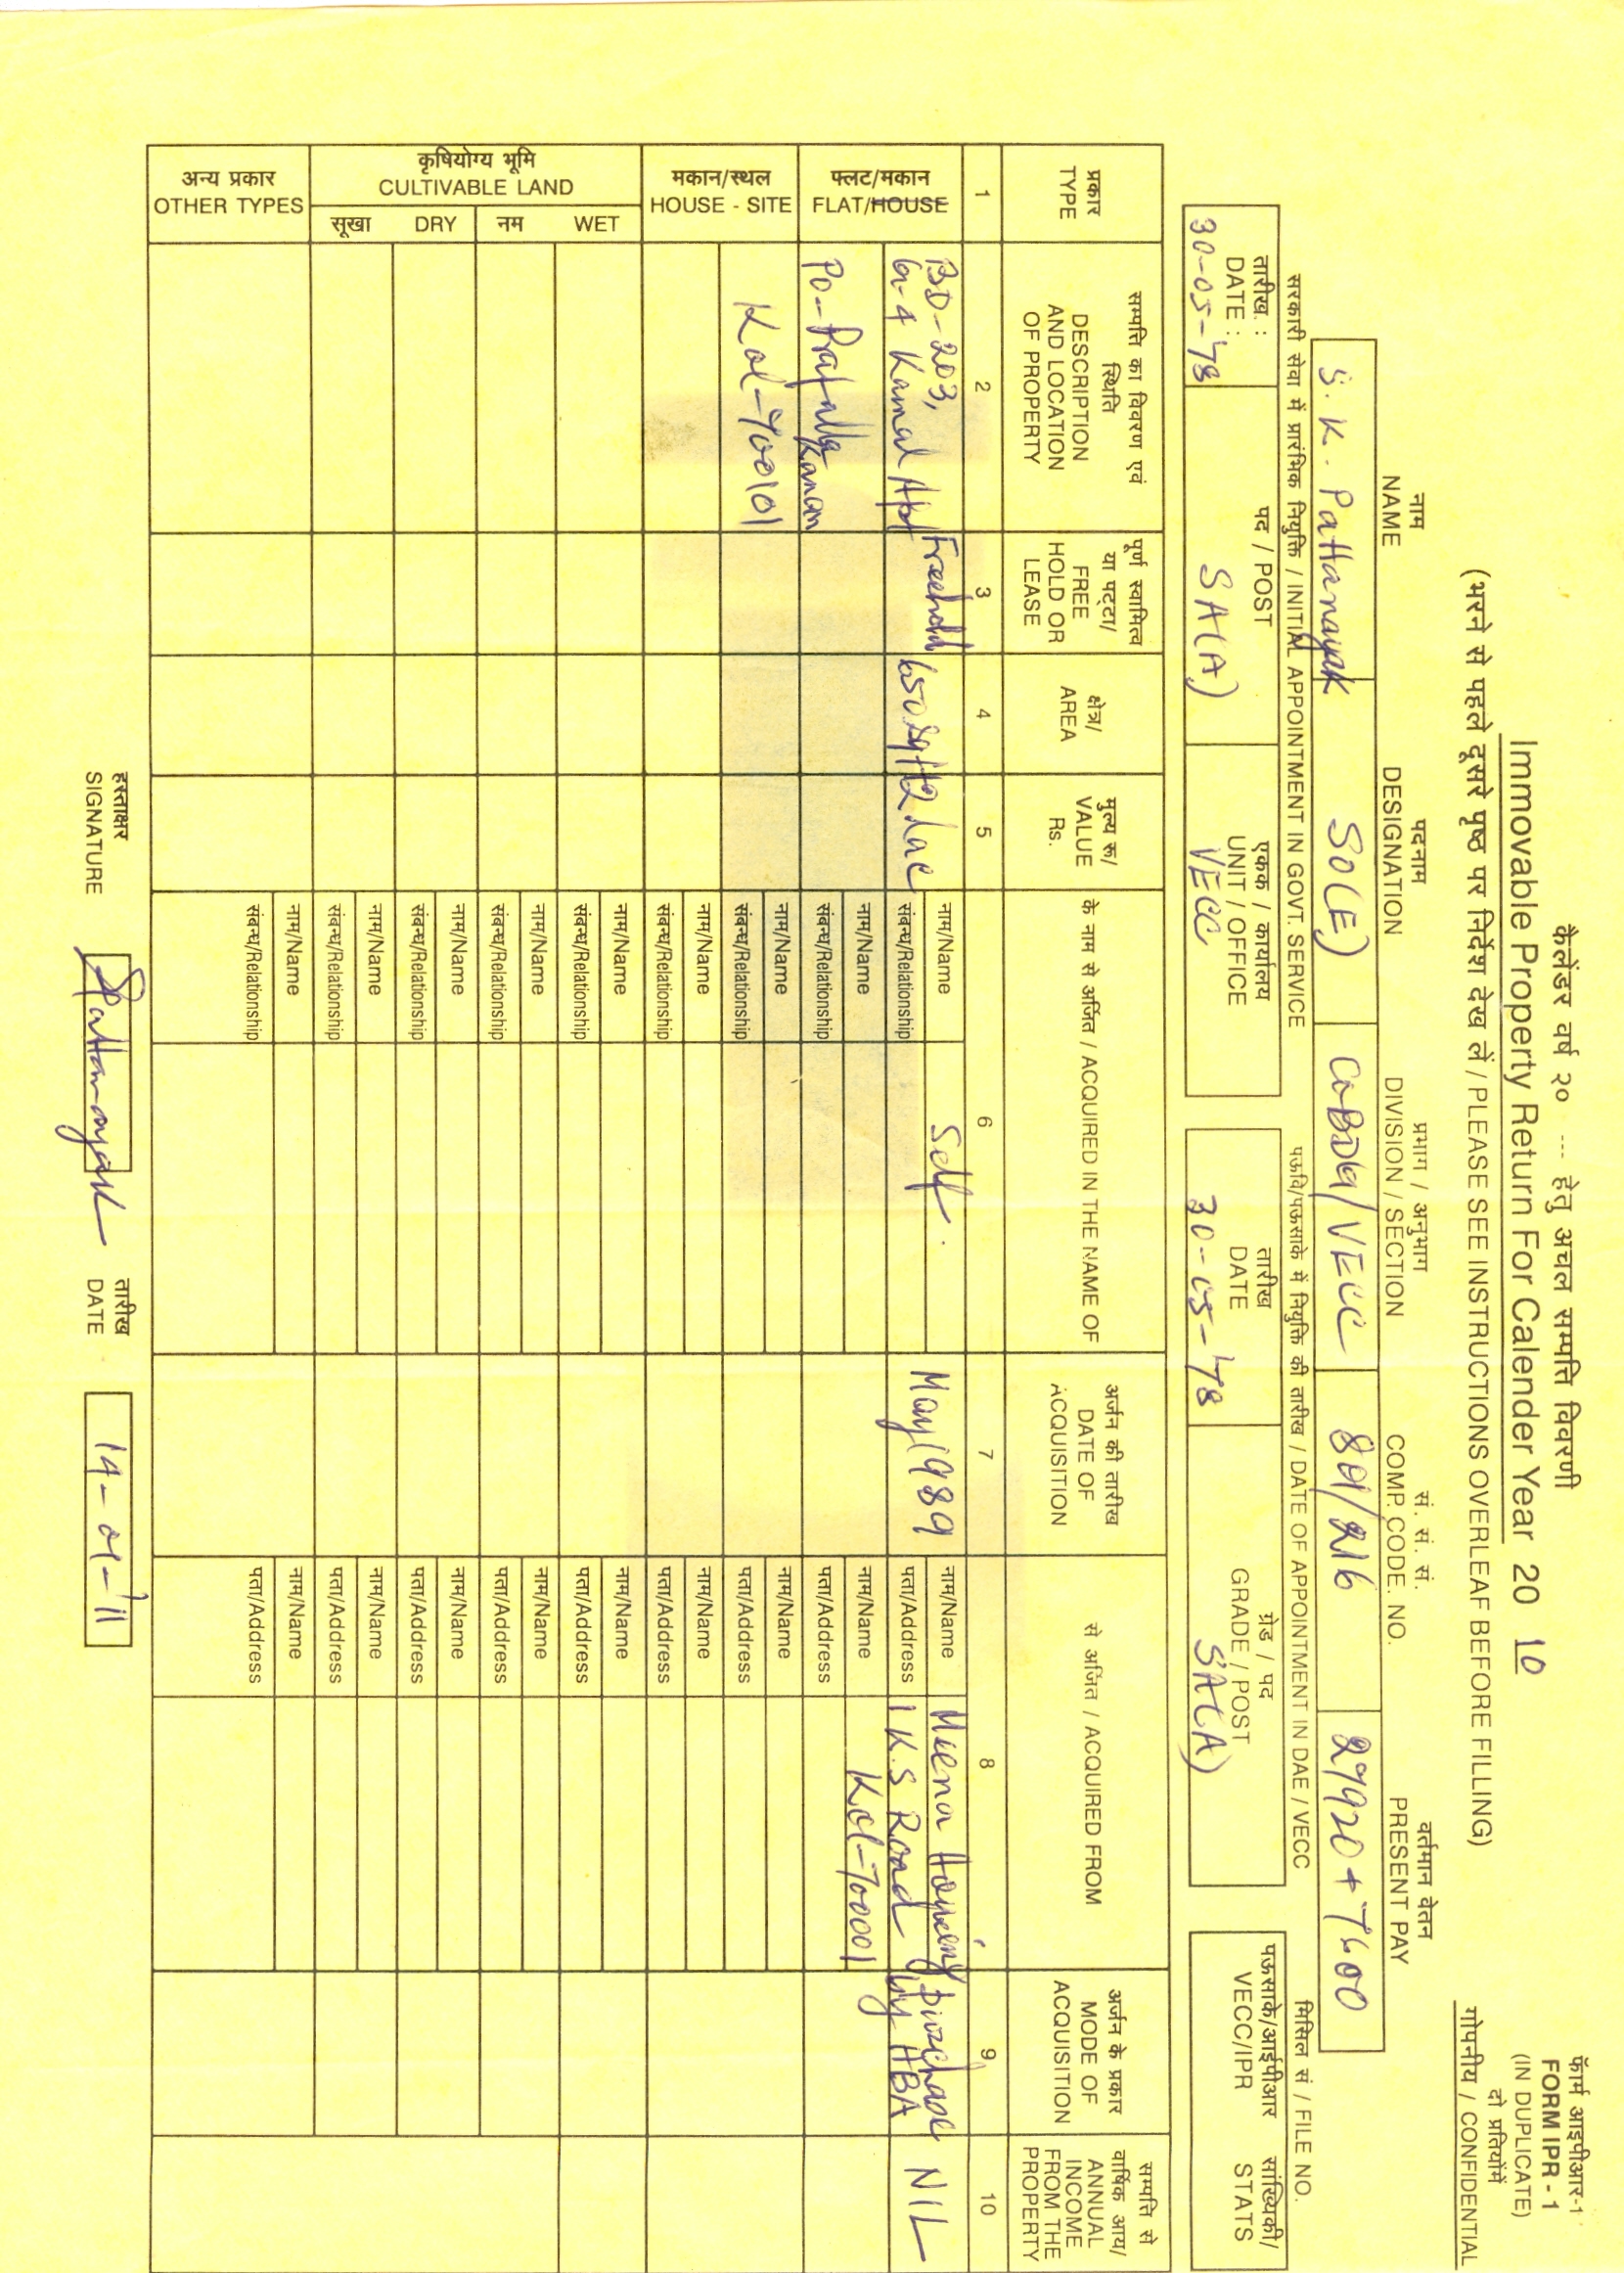 फॉर्म आइपीआर-1
FORM IPR - 1
(IN DUPLICATE)
दो प्रतियोंमें
गोपनीय / CONFIDENTIAL
कैलेंडर वर्ष २० --- हेतु अचल सम्पत्ति विवरणी
Immovable Property Return For Calender Year 20 10
(भरने से पहले दूसरे पृष्ठ पर निर्देश देख लें / PLEASE SEE INSTRUCTIONS OVERLEAF BEFORE FILLING)
नाम
NAME
पदनाम
DESIGNATION
प्रभाग / अनुभाग
DIVISION / SECTION
सं. सं. सं.
COMP. CODE. NO.
वर्तमान वेतन
PRESENT PAY
S. K. Pattanayak
SO(E)
VECC
801/216
29920 + 7600
सरकारी सेवा में प्रारंभिक नियुक्ति / INITIAL APPOINTMENT IN GOVT. SERVICE
पऊवि/पऊसाके में नियुक्ति की तारीख / DATE OF APPOINTMENT IN DAE / VECC
मिसिल सं / FILE NO.
तारीख :
DATE :
30-05-'78
पद / POST
SA(A)
एकक / कार्यालय
UNIT / OFFICE
VECC
तारीख
DATE
30-05-'78
ग्रेड / पद
GRADE / POST
SA(A)
पऊसाके/आईपीआर
VECC/IPR
सांख्यिकी/
STATS
प्रकार
TYPE
सम्पत्ति का विवरण एवं
स्थिति
DESCRIPTION
AND LOCATION
OF PROPERTY
पूर्ण स्वामित्व
या पट्टा/
FREE
HOLD OR
LEASE
क्षेत्र/
AREA
मुल्य रू/
VALUE
Rs.
के नाम से अर्जित / ACQUIRED IN THE NAME OF
अर्जन की तारीख
DATE OF
ACQUISITION
से अर्जित / ACQUIRED FROM
अर्जन के प्रकार
MODE OF
ACQUISITION
सम्पत्ति से
वार्षिक आय/
ANNUAL
INCOME
FROM THE
PROPERTY
1 2 3 4 5 6 7 8 9 10
फ्लट/मकान
FLAT/HOUSE
BD-203,
G-4 Kamal Apt
Po-Prafulla
Kanan
Kol-700101
Freehold
650 sqft
2 Lac
नाम/Name
Self.
संबन्ध/Relationship
May 1989
नाम/Name
Meena Housing
पता/Address
1 K.S Road
Kol-700001
purchase
by HBA
NIL
नाम/Name
संबन्ध/Relationship
नाम/Name
पता/Address
मकान/स्थल
HOUSE - SITE
नाम/Name
संबन्ध/Relationship
नाम/Name
पता/Address
नाम/Name
संबन्ध/Relationship
नाम/Name
पता/Address
कृषियोग्य भूमि
CULTIVABLE LAND
नम WET
नाम/Name
संबन्ध/Relationship
नाम/Name
पता/Address
नाम/Name
संबन्ध/Relationship
नाम/Name
पता/Address
सूखा DRY
नाम/Name
संबन्ध/Relationship
नाम/Name
पता/Address
नाम/Name
संबन्ध/Relationship
नाम/Name
पता/Address
अन्य प्रकार
OTHER TYPES
नाम/Name
संबन्ध/Relationship
नाम/Name
पता/Address
हस्ताक्षर
SIGNATURE
SPattanayak
तारीख
DATE
14-01-'11